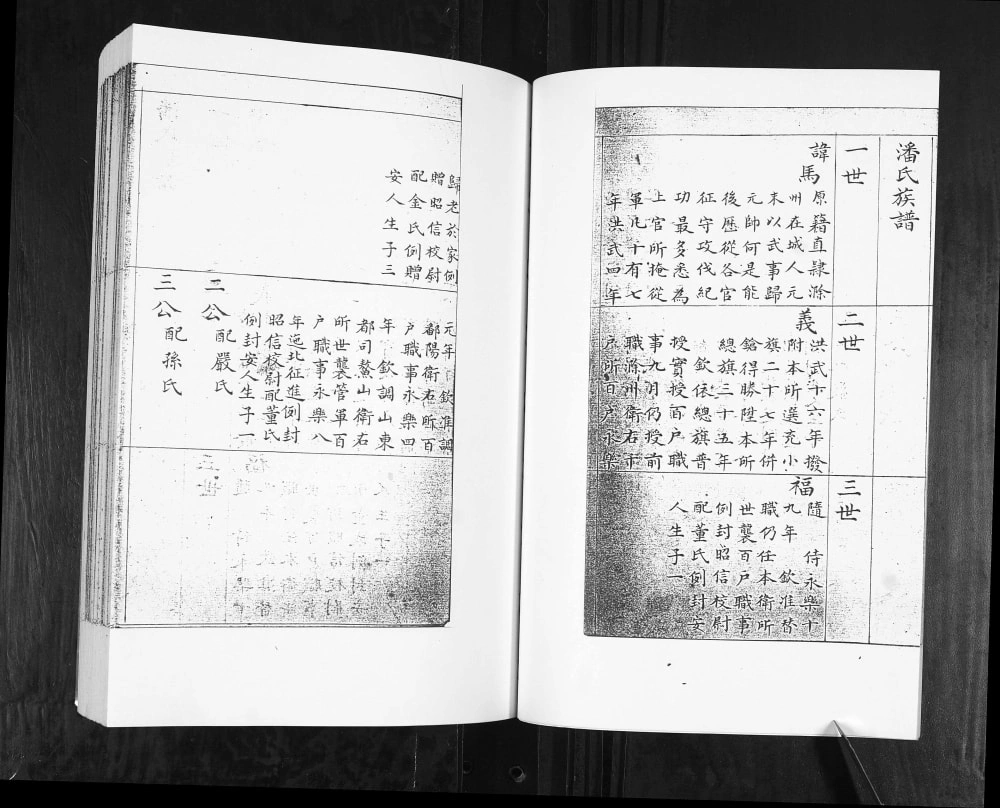 潘氏族譜
一世
諱馬
原籍直隸滁
州在城人元
末以武事歸
元帥何是能
後歷從各官
征守攻伐紀
功最多悉為
上官所掩從
軍凡十有七
年洪武四年
二世
義
洪武十六年撥
附本所選充小
旗二十七年併
鎗得勝陞本所
總旗三十五年
欽依總旗普
授實授百户職
事九月仍授前
職滁州衛右所
户所百户永樂
三世
福
隨 侍永樂十
九年 欽准替
職仍任本衛所
世襲百户職事
例封昭信校尉
配董氏例封安
人生子一
歸老於家例
贈昭信校尉
配金氏例贈
安人生子三
元年 欽准調
鄱陽衛右所百
户職事永樂四
年 欽調山東
都司鰲山衛右
所世襲管軍百
户職事永樂八
年迤北征進例封
昭信校尉配董氏
例封安人生子一
二公
配嚴氏
三公
配孫氏